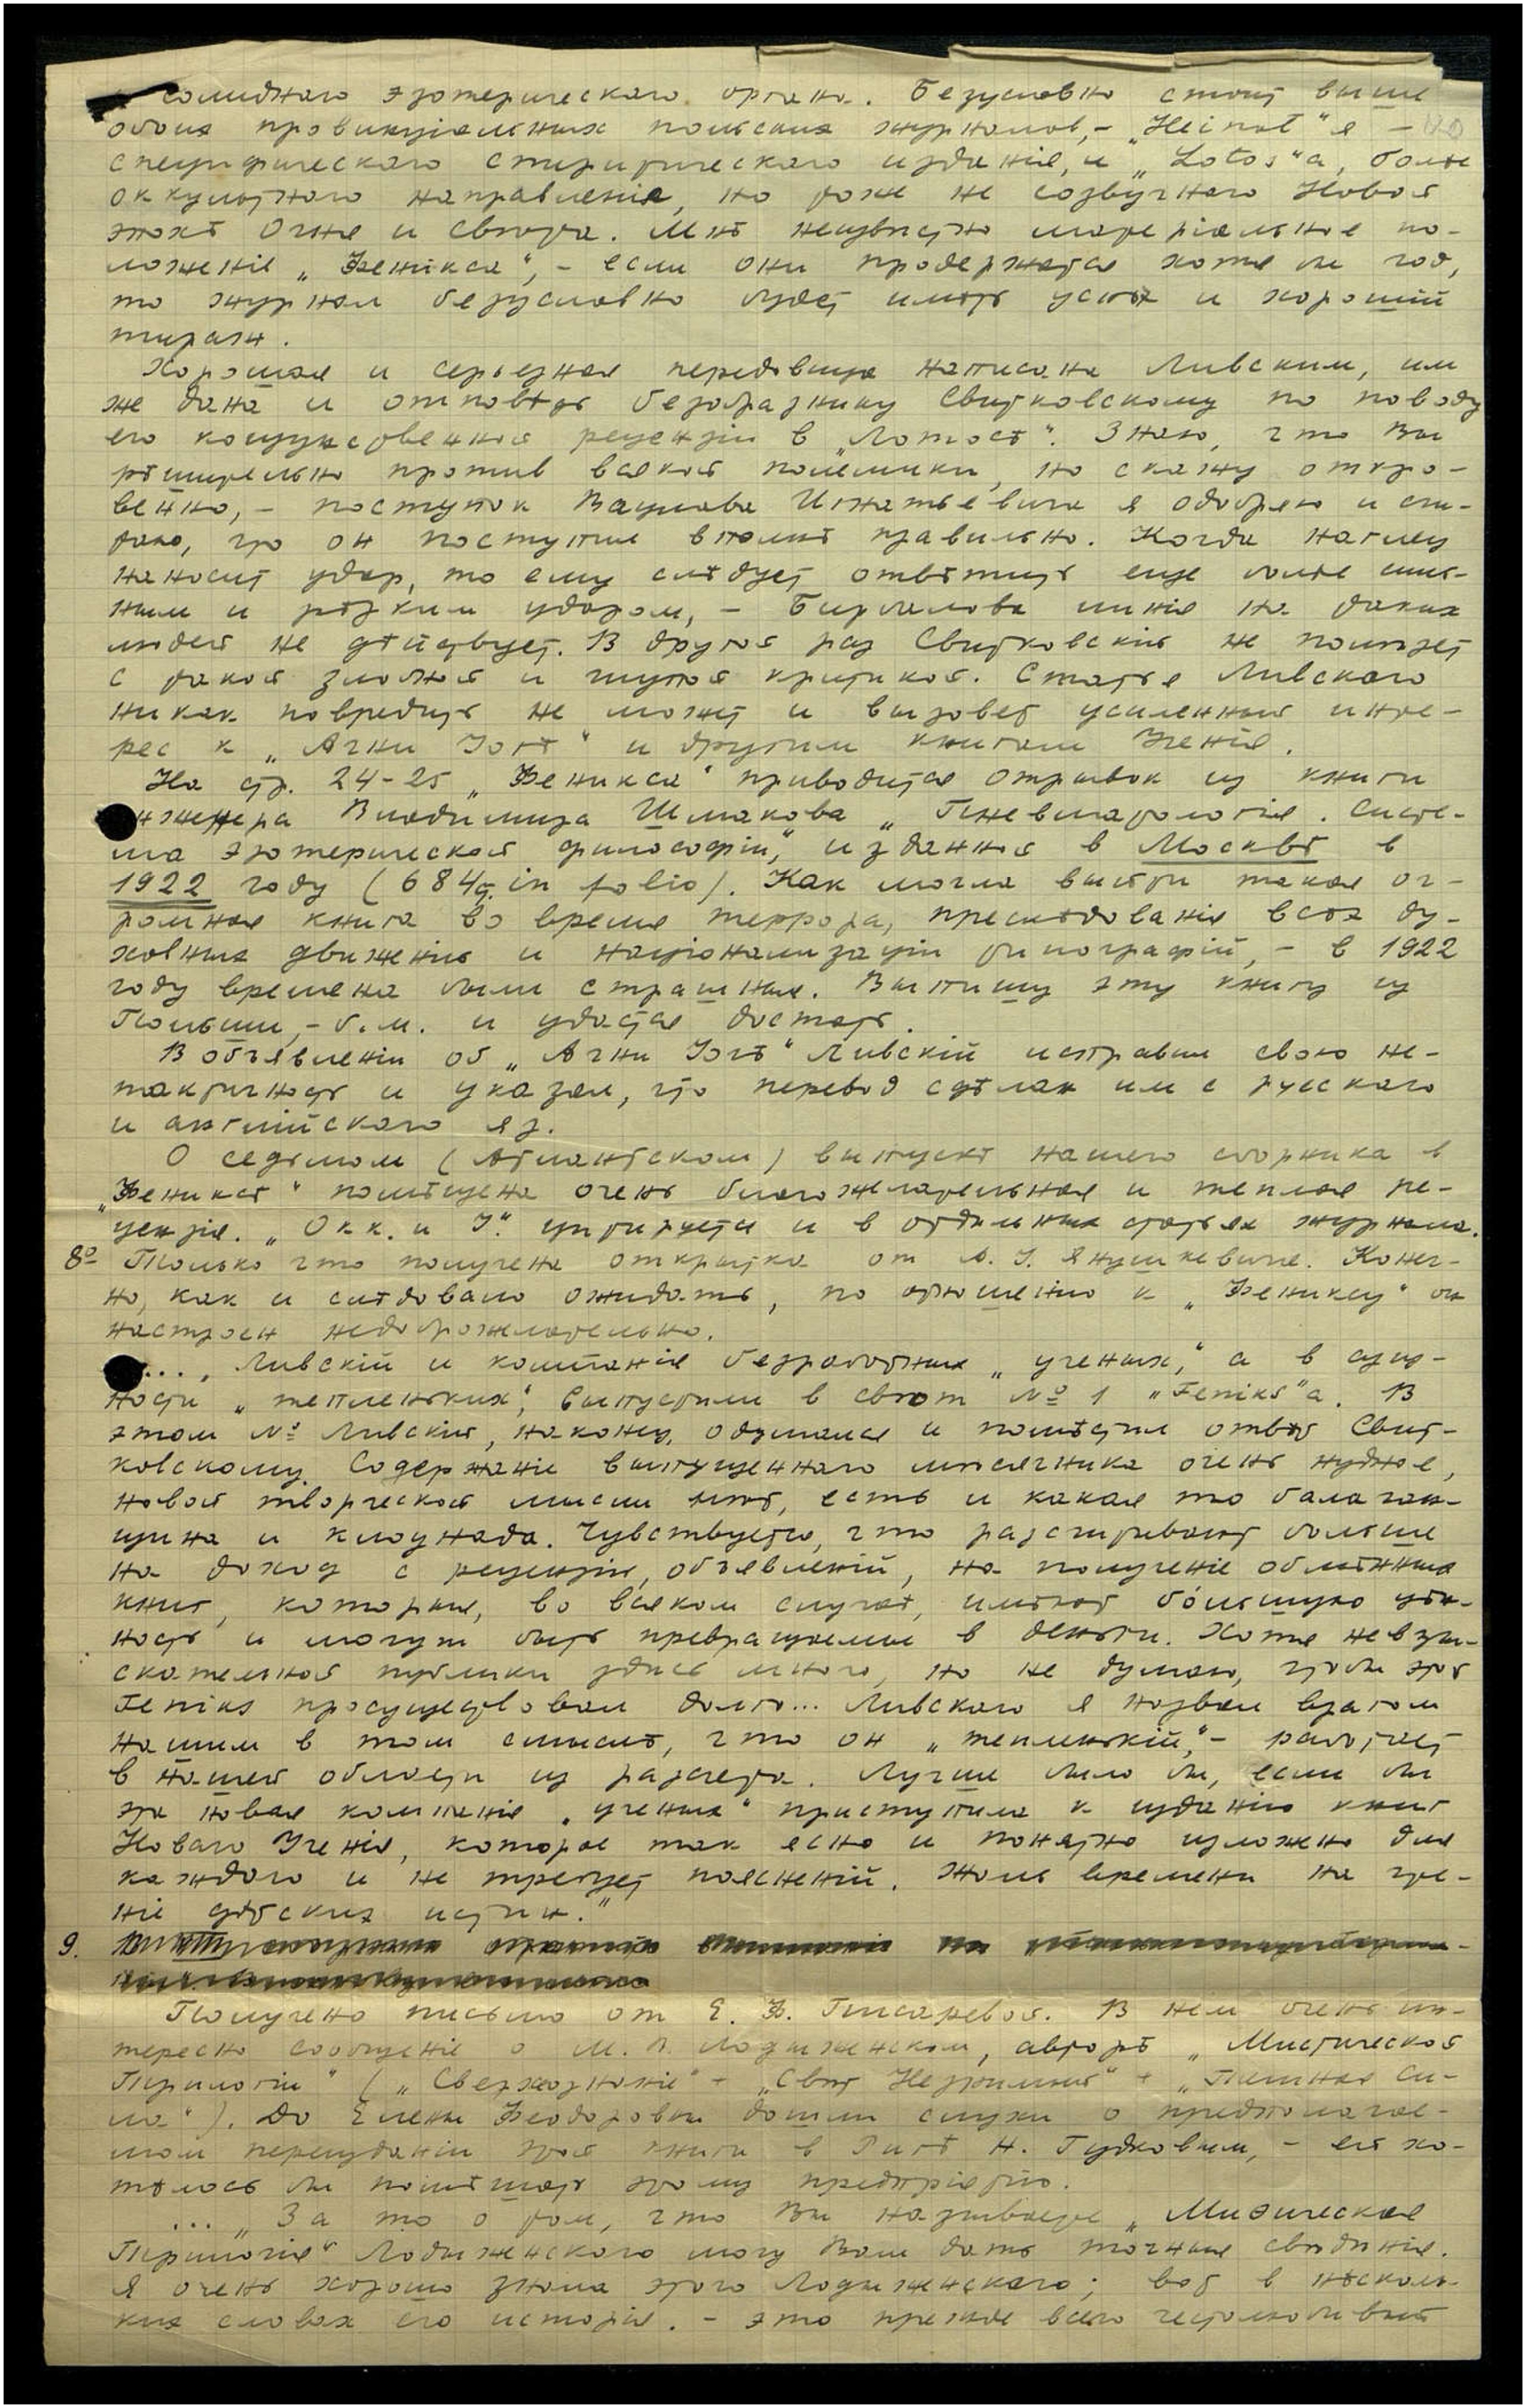 солиднаго эзотерическаго органа. Безусловно стоит выше
обоих провинціальных польских журналов, – „Hejnał"я –
специфическаго спиритическаго изданія, и „Lotos"а, болѣе
оккультнаго направленія, но тоже не созвучнаго Новой
эпохѣ Огня и Свѣта. Мнѣ неизвѣстно матеріальное по-
ложеніе „Феникса", – если они продержатся хотя бы год,
то журнал безусловно будет имѣть успѣх и хорошій
тираж.
Хорошая и серьезная передовица написана Ливским, им
же дана и отповѣдь безобразнику Свитковскому по поводу
его кощунственной рецензіи в „Лотосѣ". Знаю, что Вы
рѣшительно против всякой полемики, но скажу откро-
венно, – поступок Вацлава Игнатьевича я одобряю и счи-
таю, что он поступил вполнѣ правильно. Когда наглец
наносит удар, то ему слѣдует отвѣтить еще болѣе силь-
ным и рѣзким ударом, –
линія на таких
людей не дѣйствует. В другой раз Свитковскій не полѣзет
с такой злобной и глупой критикой. Статья Ливскаго
никак повредить не может и вызовет усиленный инте-
рес к „Агни Іогѣ" и другим книгам Ученія.
На стр. 24-25 „Феникса" приводится отрывок из книги
инженера Владимира Шмакова „Пневматологія. Систе-
ма эзотерической философіи", изданной в Москвѣ в
1922 году (684 in folio). Как могла выйти такая ог-
ромная книга во время террора, преслѣдованія всѣх ду-
ховных движеній и націонализаціи типографій, – в 1922
году времена были страшныя. Выпишу эту книгу из
Польши, – б.м. и удастся достать.
В объявленіи об „Агни Іогѣ" Ливскій исправил свою не-
тактичность и указал, что перевод сдѣлан им с русскаго
и англійскаго яз.
О седьмом (Атлантском) выпускѣ нашего сборника в
„Фениксѣ" помѣщена очень благожелательная и теплая ре-
цензія. „Окк. и І." цитируется и в отдѣльных статьях журнала.
8º Только что получена открытка от А. І. Янушкевича. Конеч-
но, как и слѣдовало ожидать, по отношенію к „Фениксу" он
настроен недоброжелательно.
... „Ливскій и компанія безработных „ученых", а в сущ-
ности „тепленьких", выпустили в свѣт № 1 „Feniks"а. В
этом № Ливскій, наконец, одумался и помѣстил отвѣт Свит-
ковскому. Содержаніе выпущеннаго мѣсячника очень нудное,
новой творческой мысли нѣт, есть и какая то балаган-
щина и клоунада. Чувствуется, что разсчитывают больше
на доход с рецензій, объявленій, на полученіе обмѣнных
книг, которыя, во всяком случаѣ, имѣют бóльшую цѣн-
ность и могут быть превращаемы в деньги. Хотя невзы-
скательной публики здѣсь много, но не думаю, чтобы этот
Feniks просуществовал долго... Ливскаго я назвал врагом
нашим в том смыслѣ, что он „тепленькій", – работает
в нашей области из разсчета. Лучше было бы, если бы
эта новая компанія „ученых" приступила к изданію книг
Новаго Ученія, которое так ясно и понятно изложено для
каждаго и не требует поясненій. Жаль времени на чте-
ніе дѣтских истин."
9.
Получено письмо от Е. Ф. Писаревой. В нем очень ин-
тересно сообщеніе о М. В. Лодыженском, авторѣ „Мистической
Трилогіи" („Сверхсознаніе" + „Свѣт Незримый" + „Темная Си-
ла"). До Елены Феодоровны дошли слухи о предполагае-
мом переизданіи этой книги в Ригѣ Н. Гудковым, – ей хо-
тѣлось бы помѣшать этому предпріятію.
... „За то о том, что Вы называете „Мистическая
Трилогія" Лодыженскаго могу Вам дать точныя свѣдѣнія.
Я очень хорошо знала этого Лодыженскаго; вот в нѣсколь-
ких словах его исторія. – это прежде всего честолюбивый